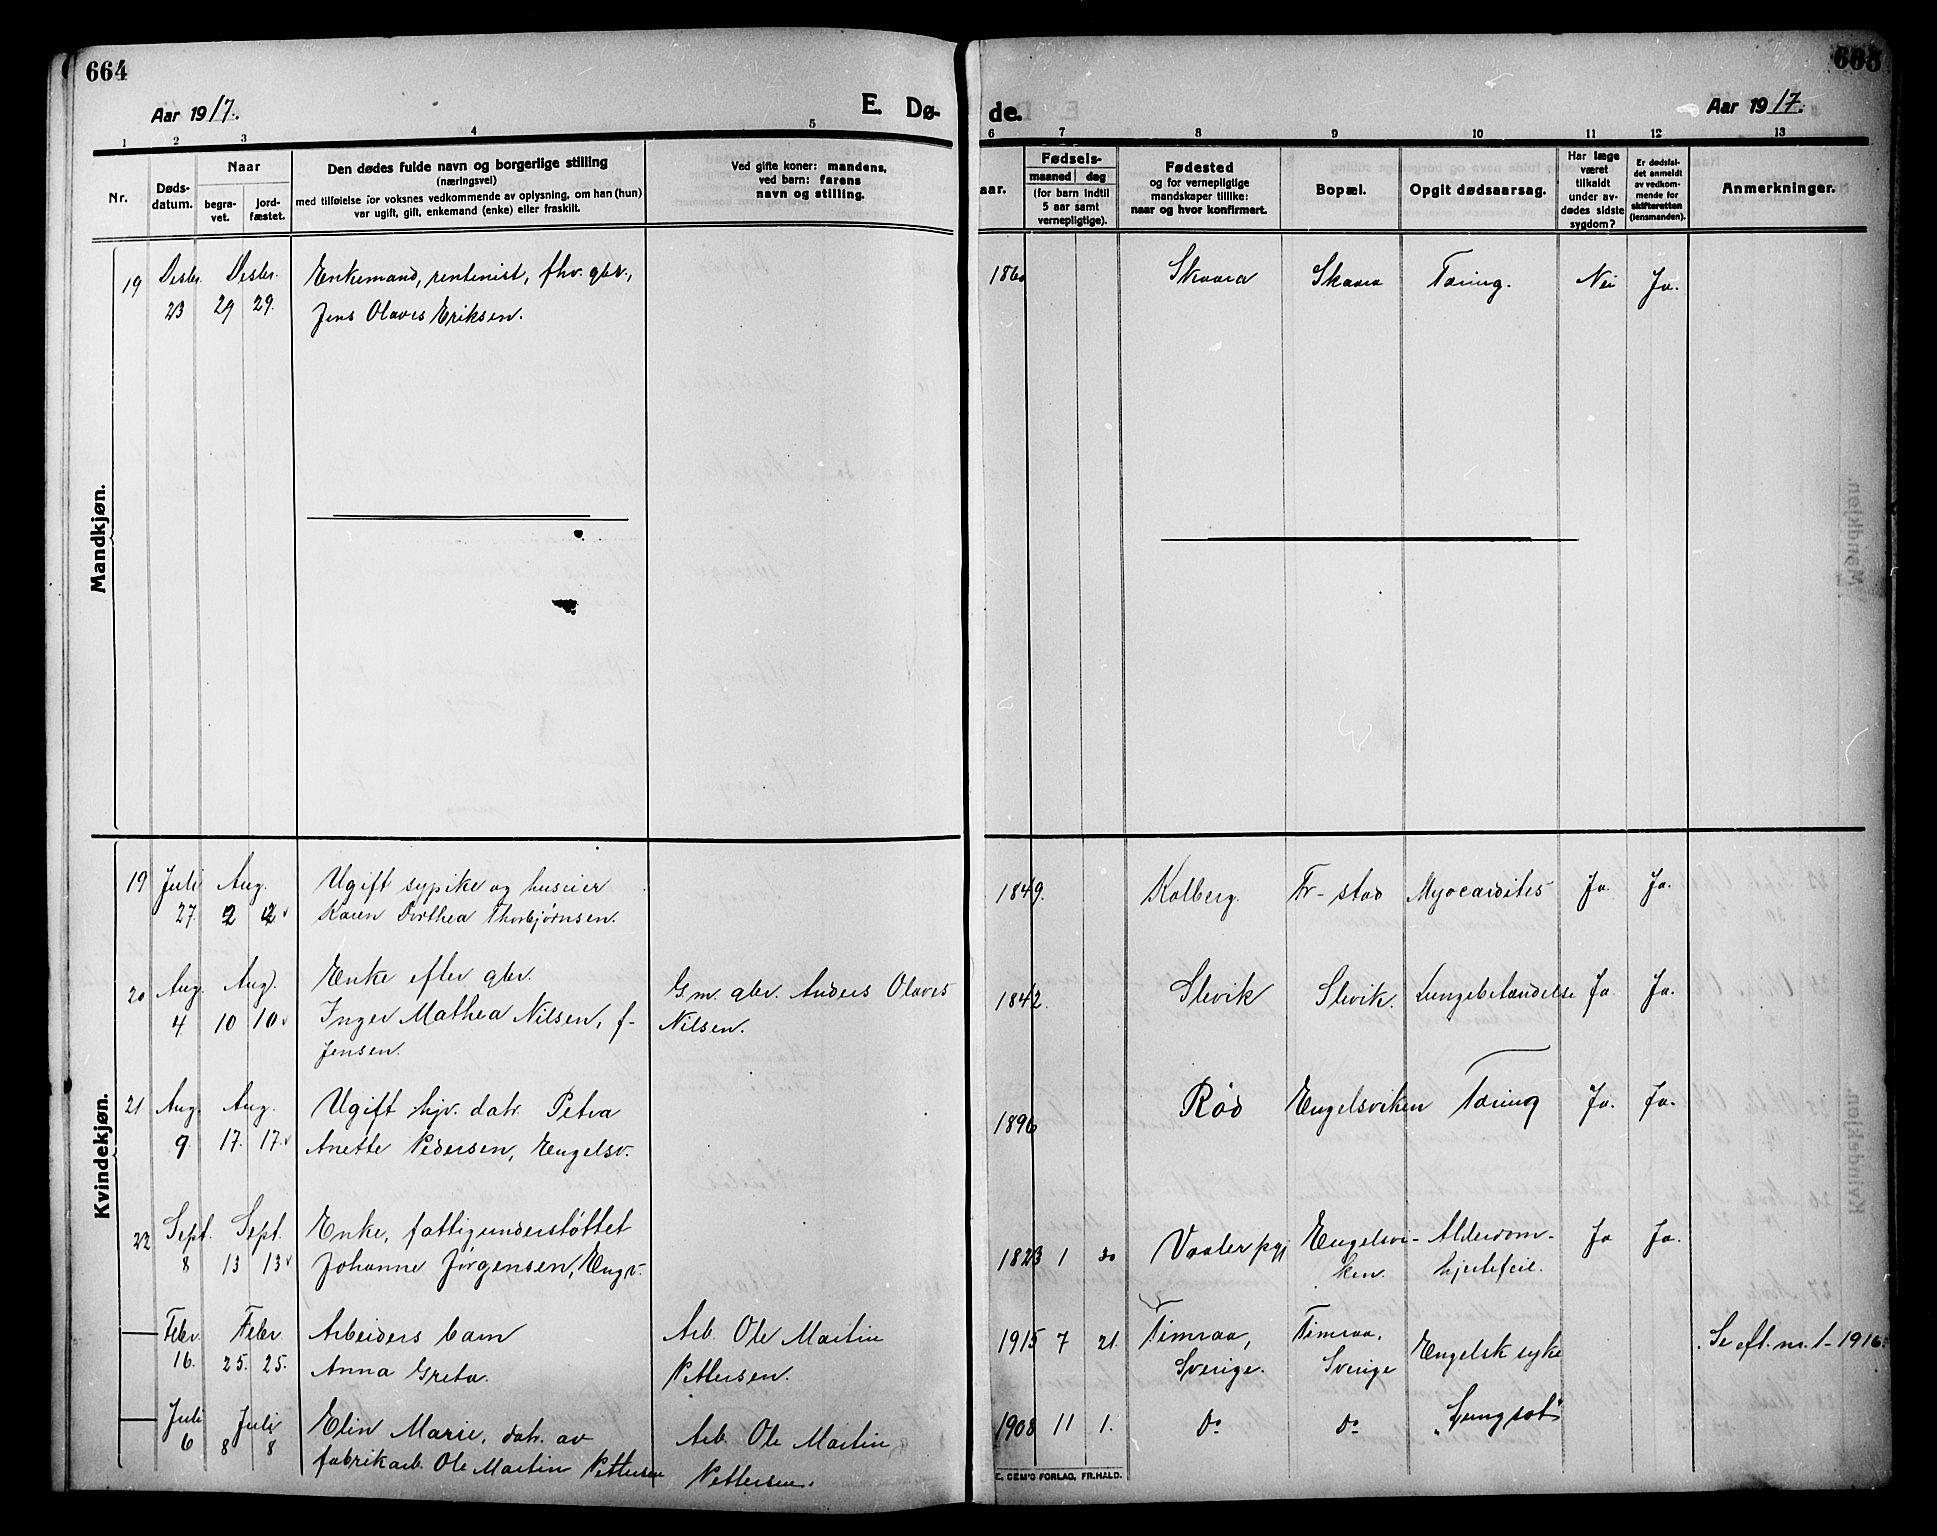 664
Aar 1917.
E. Dø-
1 2 3 4 5
Nr.
Døds-
datum.
Naar
begra-
vet.
jord-
fæstet.
Den dødes fulde navn og borgerlige stilling
(næringsvei)
med tilføielse for voksnes vedkommende av oplysning, om han (hun)
var ugift, gift, enkemand (enke) eller fraskilt.
Ved gifte koner: mandens,
ved barn: farens
navn og stilling.
Mandkjøn.
19 Desbr. Desbr. Enkemand, rentenist, fhv. gbr.,
23 29 29. Jens Olaves Eriksen.
Kvindekjøn.
19 Juli Aug. Ugift sypike og huseier
27. 2 2 Karen Dorthea Thorbjørnsen.
20 Aug. Aug. Enke efter gbr. Gm. gbr. Anders Olaves
4 10 10 Inger Mathea Nilsen, f- Nilsen.
Jensen.
21 Aug. Aug. Ugift hjv. datr. Petra
9 17. 17. Anette Pedersen, Engelsv.
22 Sept. Sept. Enke, fattigunderstøttet
8 13 13 Johanne Jørgensen, Engv.
Febr. Febr. Arbeiders barn Arb. Ole Martin
16. 25. 25. Anna Greta. Pettersen.
Juli Juli Elin Marie, datr. av Arb. Ole Martin
6 8 8 fabrikarb. Ole Martin Pettersen Pettersen.
665
de.
Aar 1917.
6 7 8 9 10 11 12 13
aar.
Fødsels-
maaned dag
(for barn indtil
5 aar samt
vernepligtige).
Fødested
og for vernepligtige
mandskaper tillike:
naar og hvor konfirmert.
Bopæl.
Opgit dødsaarsag.
Har læge
været
tilkaldt
under av-
dødes sidste
sygdom?
Er dødsfal-
det anmeldt
av vedkom-
mende for
skifteretten
(lensmanden).
Anmerkninger.
1860 Skaara Skaara Tæring. Nei Ja.
1849. Kolberg. Fr-stad Myocardites Ja. Ja.
1842. Slevik Slevik. Lungebetændelse Ja Ja.
1896 Rød Engelsviken Tæring Ja. Ja.
1823 1 30 Vaaler pgj Engelsvi- Alderdom- Ja Ja.
ken. hjertefeil.
1915 7 21. Timraa, Timraa, Engelsk syke Se eft. nr. 1-1916.
Sverige. Sverige
1908 11 1. do do "Lungsot"
E. GEM'S FORLAG, FR.HALD.